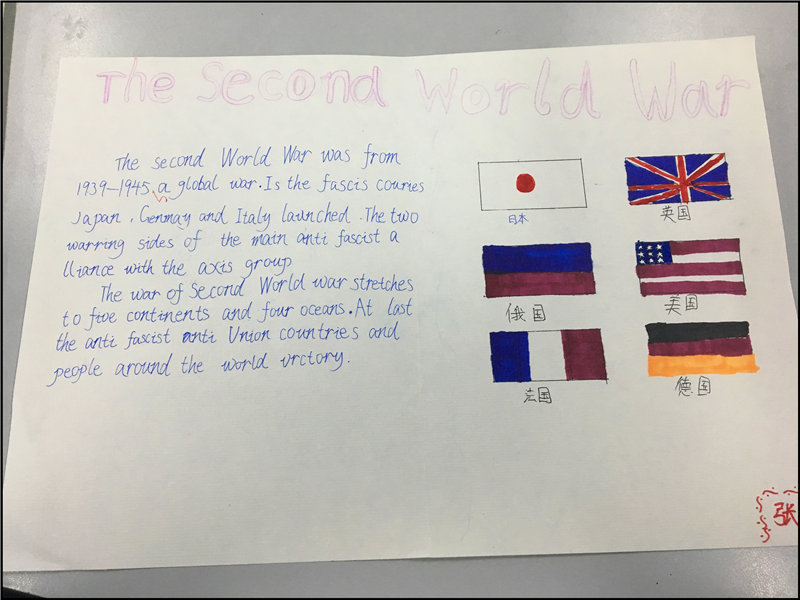 The Second World War
The second World War was from
1939-1945, a global war. Is the fascis couries
Japan, Genmay and Italy launched. The two
warring sides of the main anti fascist a
lliance with the axis group
The war of Second World war stretches
to five continents and four oceans. At last
the anti fascist anti Union countries and
people around the world vrctory.
日本
英国
俄国
美国
法国
德国
张